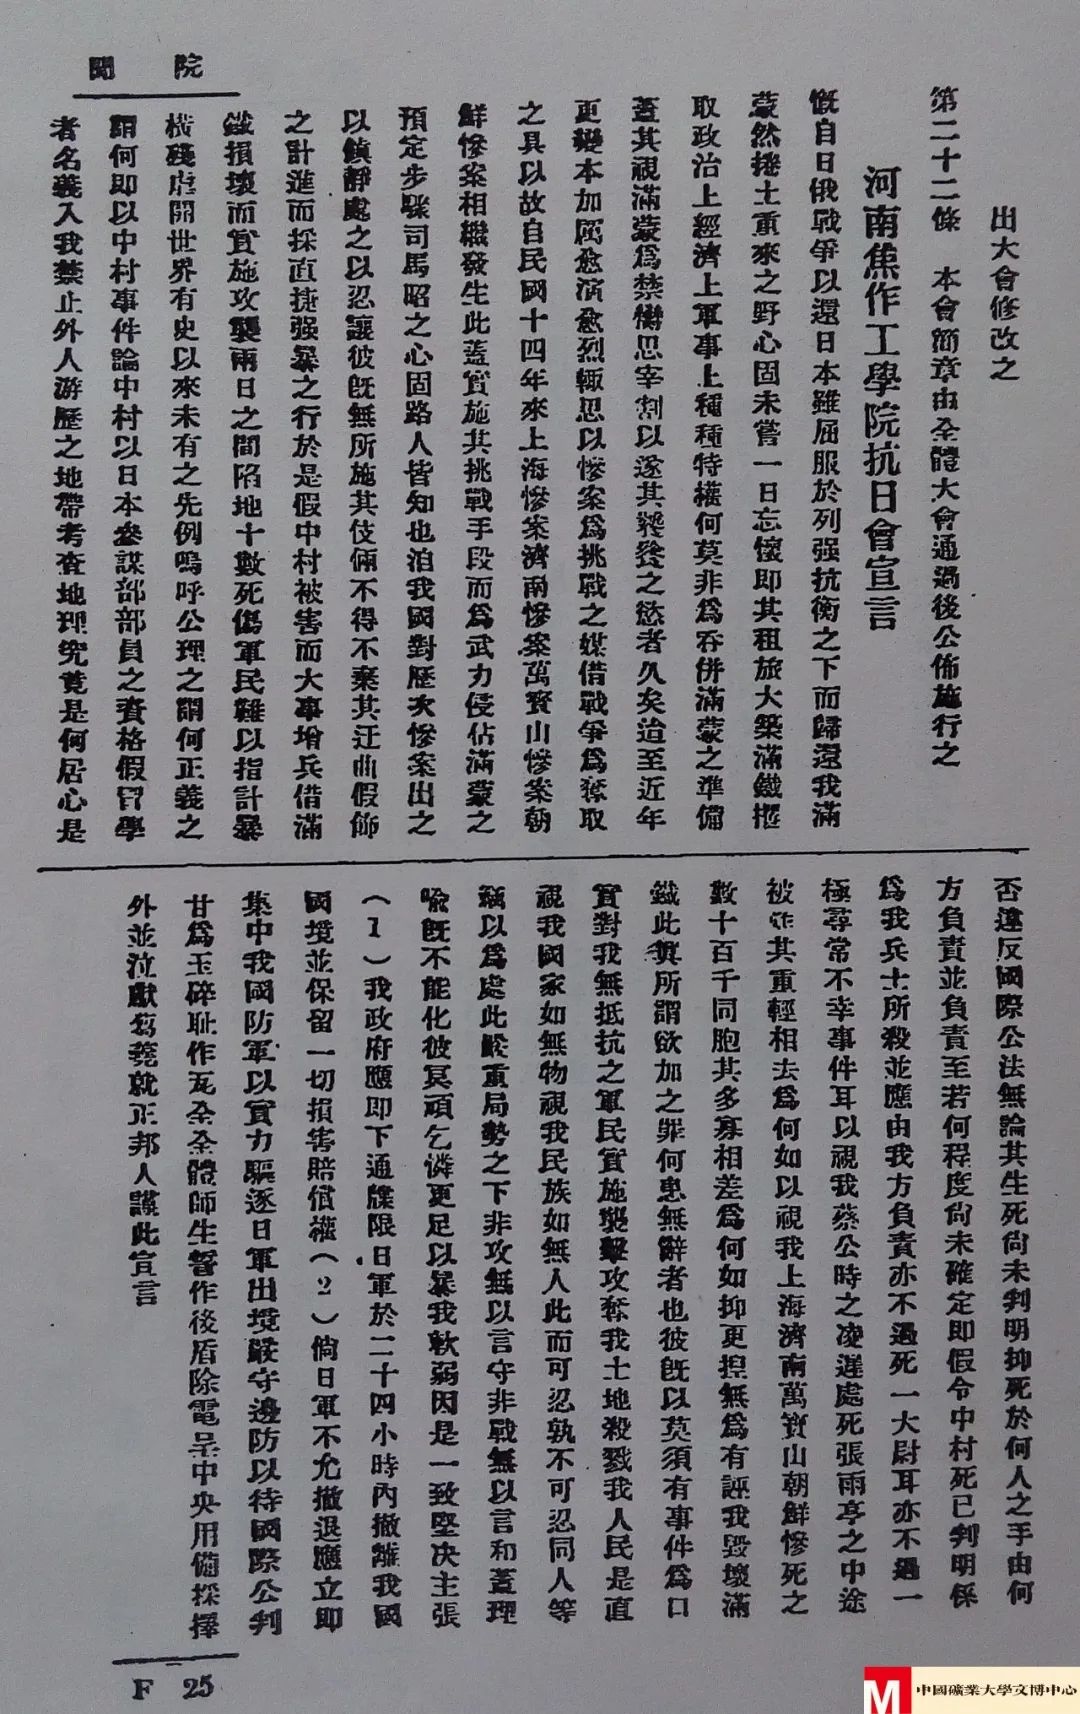 院聞
出大會修改之
第二十二條　本會簡章由全體大會通過後公佈施行之
河南焦作工學院抗日會宣言
慨自日俄戰爭以還日本雖屈服於列强抗衡之下而歸還我滿
蒙然捲土重來之野心固未嘗一日忘懷即其租旅大築滿鐵攫
取政治上經濟上軍事上種種特權何莫非爲吞併滿蒙之準備
蓋其視滿蒙爲禁臠思宰割以遂其饕餮之慾者久矣迨至近年
更變本加厲愈演愈烈輙思以慘案爲挑戰之媒借戰爭爲奪取
之具以故自民國十四年來上海慘案濟南慘案萬寳山慘案朝
鮮慘案相繼發生此蓋實施其挑戰手段而爲武力侵佔滿蒙之
預定步驟司馬昭之心固路人皆知也洎我國對歷次慘案出之
以鎮靜處之以忍讓彼旣無所施其伎倆不得不棄其迂曲假飾
之計進而採直捷强暴之行於是假中村被害而大事增兵借滿
鐵損壞而實施攻襲兩日之間陷地十數死傷軍民難以指計暴
橫殘虐開世界有史以來未有之先例嗚呼公理之謂何正義之
謂何即以中村事件論中村以日本參謀部部員之資格假冒學
者名義入我禁止外人游歷之地帶考查地理究竟是何居心是
否違反國際公法無論其生死尙未判明抑死於何人之手由何
方負責並負責至若何程度尙未確定即假令中村死已判明係
爲我兵士所殺並應由我方負責亦不過死一大尉耳亦不過一
極尋常不幸事件耳以視我蔡公時之凌遲處死張雨亭之中途
被炸其重輕相去爲何如以視我上海濟南萬寶山朝鮮慘死之
數十百千同胞其多寡相差爲何如抑更揑無爲有誣我毀壞滿
鐵此眞所謂欲加之罪何患無辭者也彼旣以莫須有事件爲口
實對我無抵抗之軍民實施襲擊攻奪我土地殺戮我人民是直
視我國家如無物視我民族如無人此而可忍孰不可忍同人等
竊以爲處此嚴重局勢之下非攻無以言守非戰無以言和蓋理
喩旣不能化彼冥頑乞憐更足以暴我軟弱因是一致堅决主張
（1）我政府應即下通牒限日軍於二十四小時內撤離我國
國境並保留一切損害賠償權（2）倘日軍不允撤退應立即
集中我國防軍以實力驅逐日軍出境嚴守邊防以待國際公判
甘爲玉碎耻作瓦全全體師生誓作後盾除電呈中央用備採擇
外並泣獻蒭蕘就正邦人謹此宣言
F 25
中國礦業大學文博中心